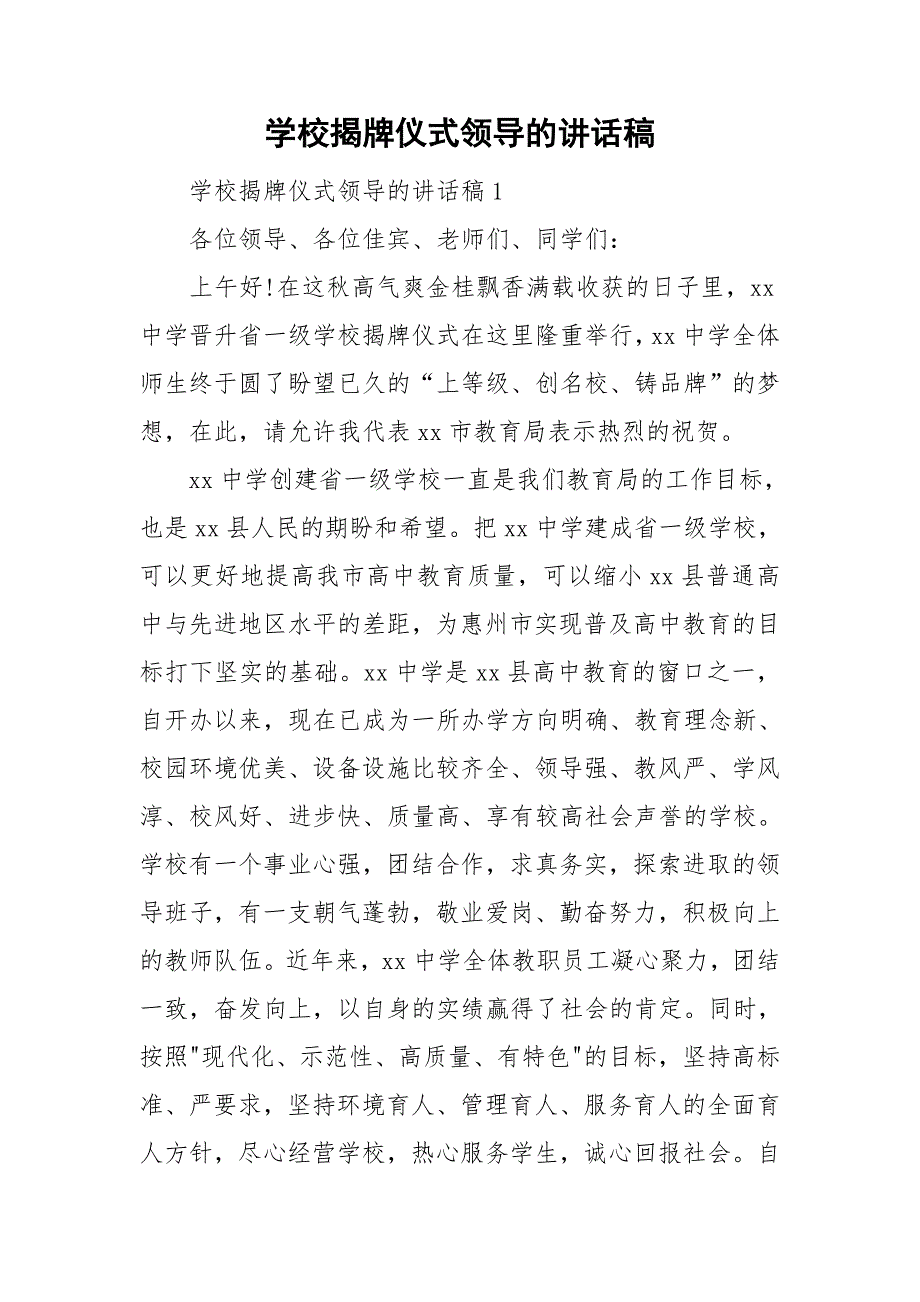 学校揭牌仪式领导的讲话稿
学校揭牌仪式领导的讲话稿 1
各位领导、各位佳宾、老师们、同学们：
上午好!在这秋高气爽金桂飘香满载收获的日子里，xx
中学晋升省一级学校揭牌仪式在这里隆重举行，xx 中学全体
师生终于圆了盼望已久的“上等级、创名校、铸品牌”的梦
想，在此，请允许我代表 xx 市教育局表示热烈的祝贺。
xx 中学创建省一级学校一直是我们教育局的工作目标，
也是 xx 县人民的期盼和希望。把 xx 中学建成省一级学校，
可以更好地提高我市高中教育质量，可以缩小 xx 县普通高
中与先进地区水平的差距，为惠州市实现普及高中教育的目
标打下坚实的基础。xx 中学是 xx 县高中教育的窗口之一，
自开办以来，现在已成为一所办学方向明确、教育理念新、
校园环境优美、设备设施比较齐全、领导强、教风严、学风
淳、校风好、进步快、质量高、享有较高社会声誉的学校。
学校有一个事业心强，团结合作，求真务实，探索进取的领
导班子，有一支朝气蓬勃，敬业爱岗、勤奋努力，积极向上
的教师队伍。近年来，xx 中学全体教职员工凝心聚力，团结
一致，奋发向上，以自身的实绩赢得了社会的肯定。同时，
按照"现代化、示范性、高质量、有特色"的目标，坚持高标
准、严要求，坚持环境育人、管理育人、服务育人的全面育
人方针，尽心经营学校，热心服务学生，诚心回报社会。自